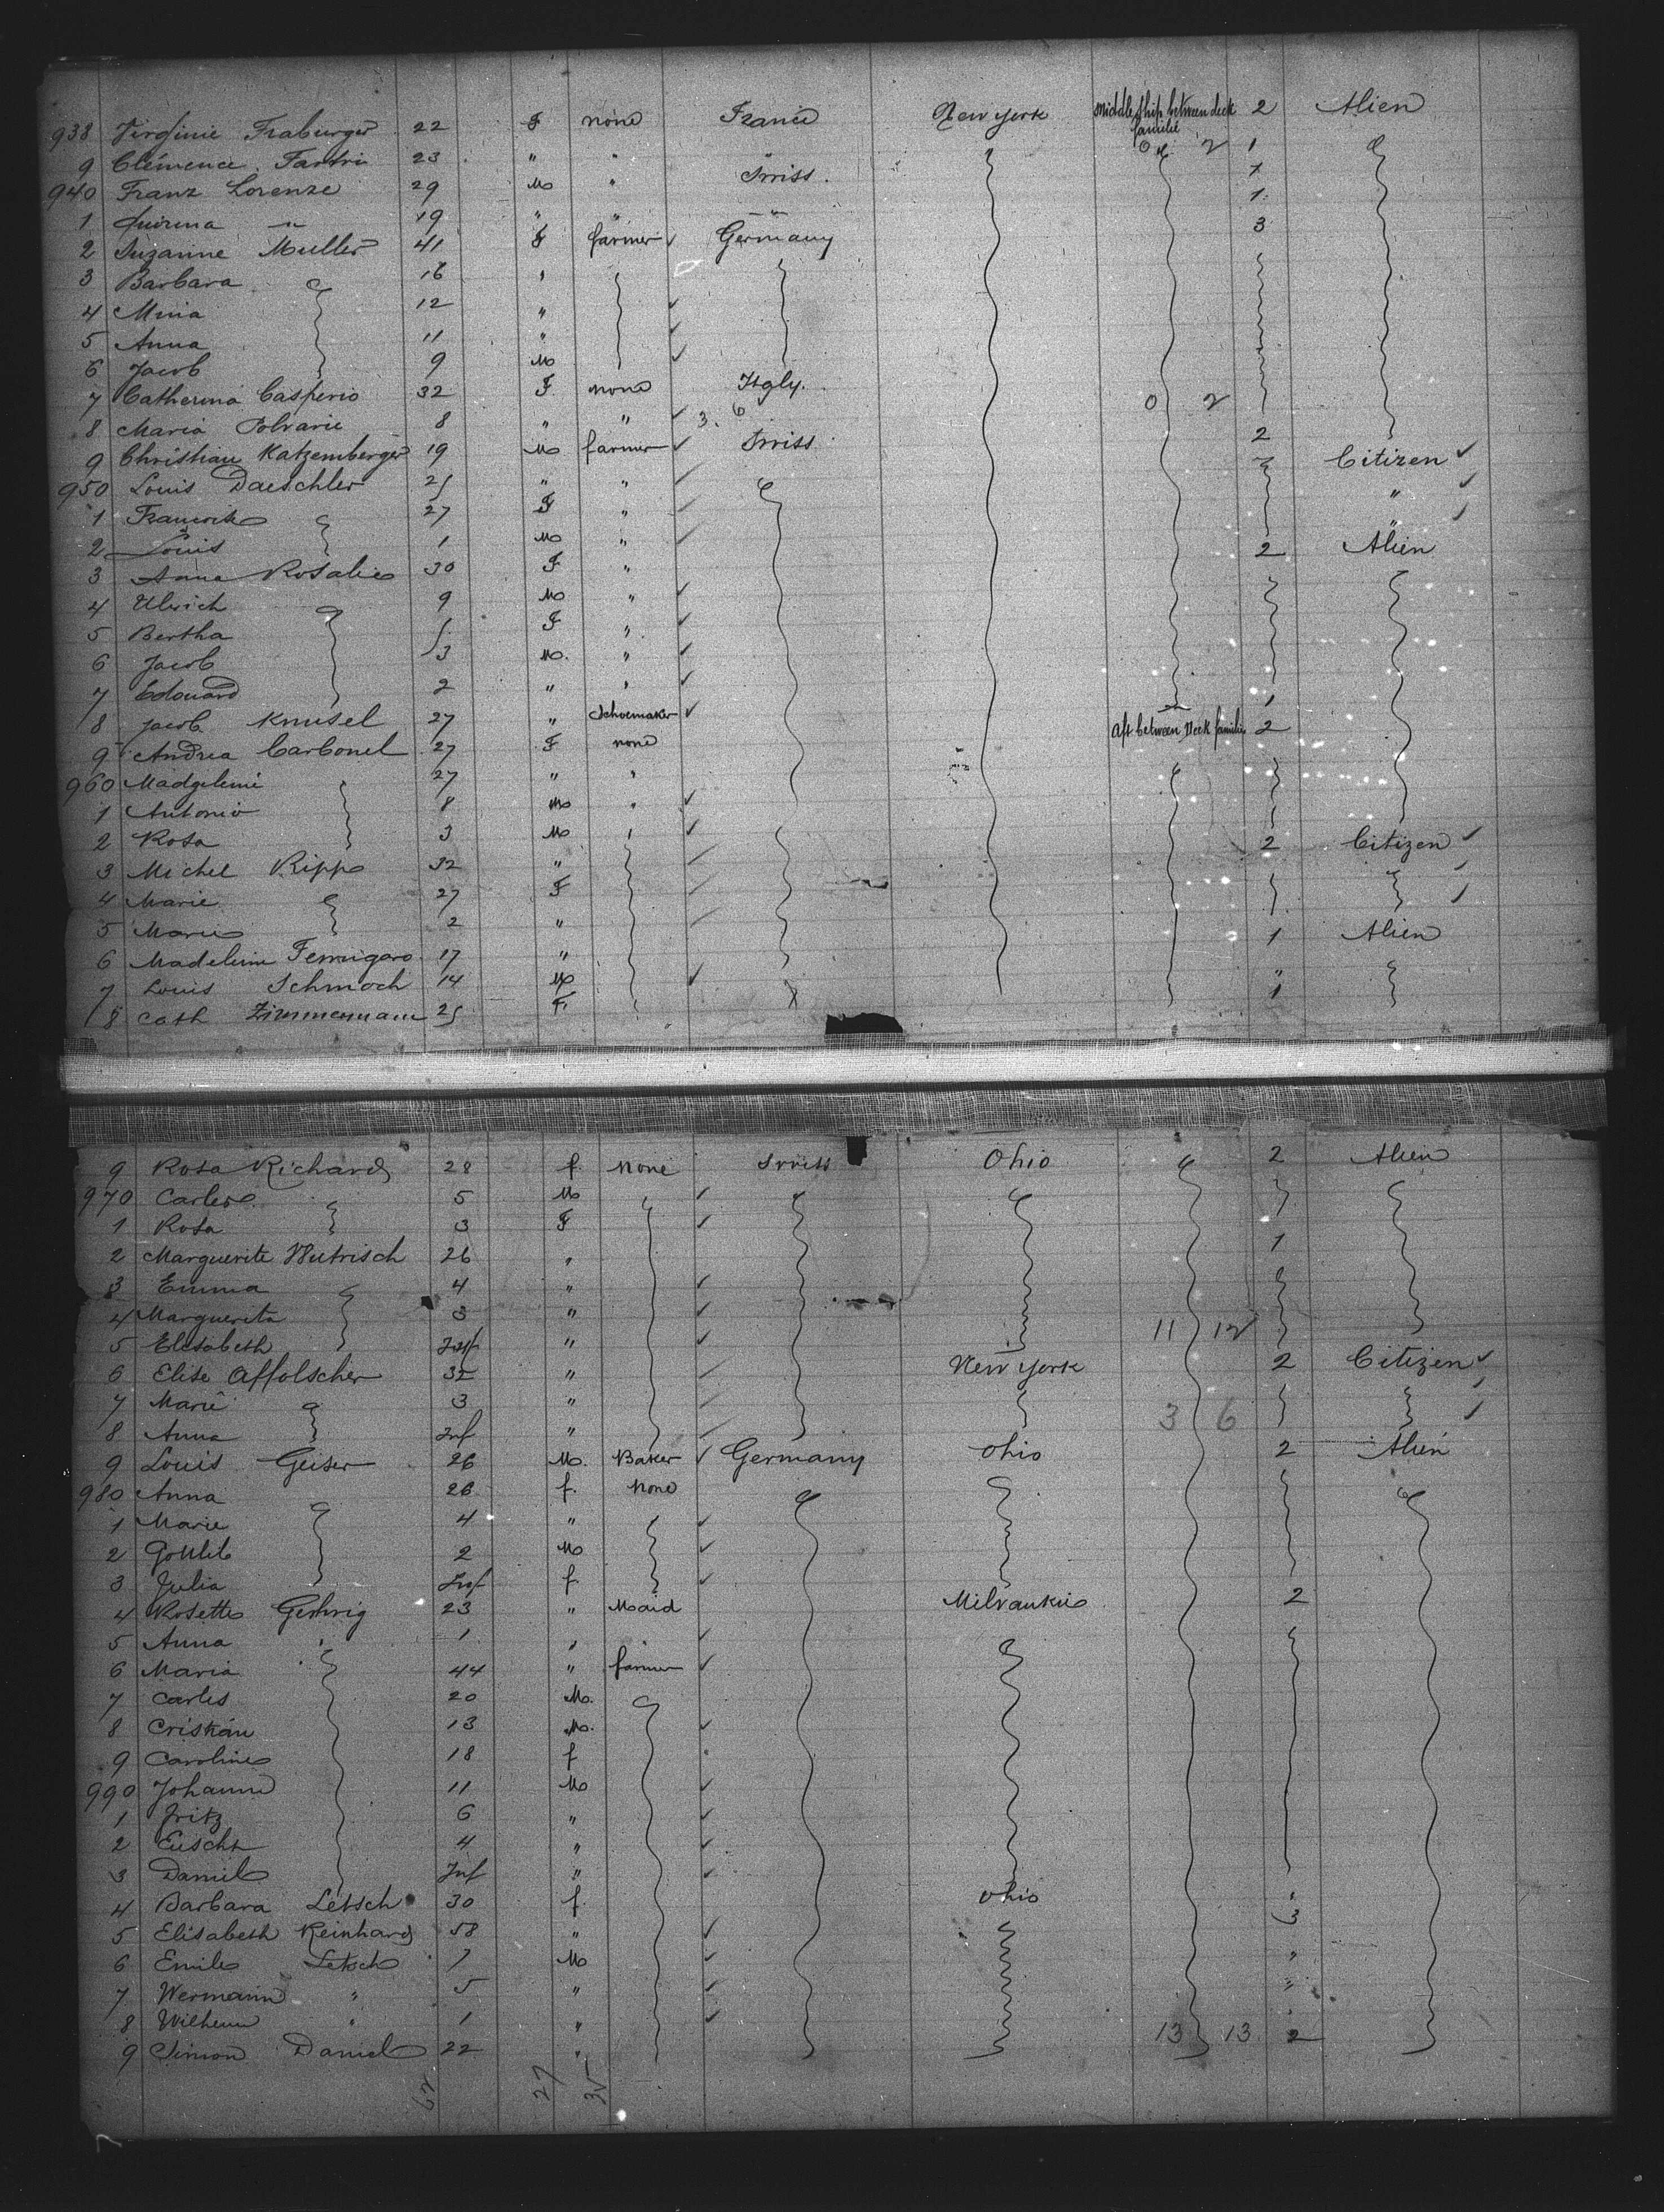 938 Virginie Fraburger 22 F none France New York middle ship between deck familie 2 Alien
9 Clémence Fartri 23 " " " 0 2 1
940 Franz Lorenze 29 M " Swiss 1
1 Quirina " 19 " " " 1
2 Suzanne Muller 41 F farmer Germany 3
3 Barbara 16 "
4 Mina 12 "
5 Anna 11 "
6 Jacob 9 M
7 Catherina Casperio 32 F none Itgly. 0 2
8 Maria Polvarie 8 " " 3. 6
9 Christian Katzemberger 19 M farmer Swiss 2 Citizen
950 Louis Daeschler 25 " " "
1 27 F " "
2 Louis 1 M " 2 Alien
3 Anna Rosalie 30 F "
4 Ulrich 9 M "
5 Bertha 5 F "
6 Jacob 3 M. "
7 Edouard 2 " "
8 Jacob Knusel 27 " Schoemaker 1
9 Andrea Carbonel 27 F none aft between Deck familie 2
960 Madgeleine 27 " "
1 Antonio 8 M "
2 Rosa 3 M " 2 Citizen
3 Michel Ripp 32 "
4 Marie 27 F
5 Marie 2 " 1 Alien
6 Madeleine Femigaro 17 "
7 Louis Schmoch 14 M "
8 Cath Zimmermann 25 F. 1
9 Rosa Richard 28 f. none Swiss Ohio 2 Alien
970 Carles 5 M
1 Rosa 3 F
2 Marguerite Wutrisch 26 " 1
3 Emma 4 "
4 Marguerita 3 " 11 12
5 Elisabeth Inf "
6 Elise Affolscher 32 " New York 2 Citizen
7 Marie 3 " 3 6
8 Anna Inf "
9 Louis Geiser 26 M. Baker Germany Ohio 2 Alien
980 Anna 26 f. none
1 Marie 4 "
2 Gottlib 2 M
3 Julia Inf f.
4 Rosette Gerhrig 23 " Maid Milvaukie 2
5 Anna 1 "
6 Maria 44 " farmer
7 Carles 20 M.
8 Cristian 13 M.
9 Caroline 18 f
990 Johann 11 M
1 Fritz 6 "
2 Euscht 4 "
3 Daniel Inf "
4 Barbara Letsch 30 f. Ohio "
5 Elisabeth Reinhard 58 " 3
6 Emile Letsch 7 M "
7 Wermann " 5 " "
8 Wilhem " 1 " "
9 Simon Daniel 22 " 13 13 2
62 27 35